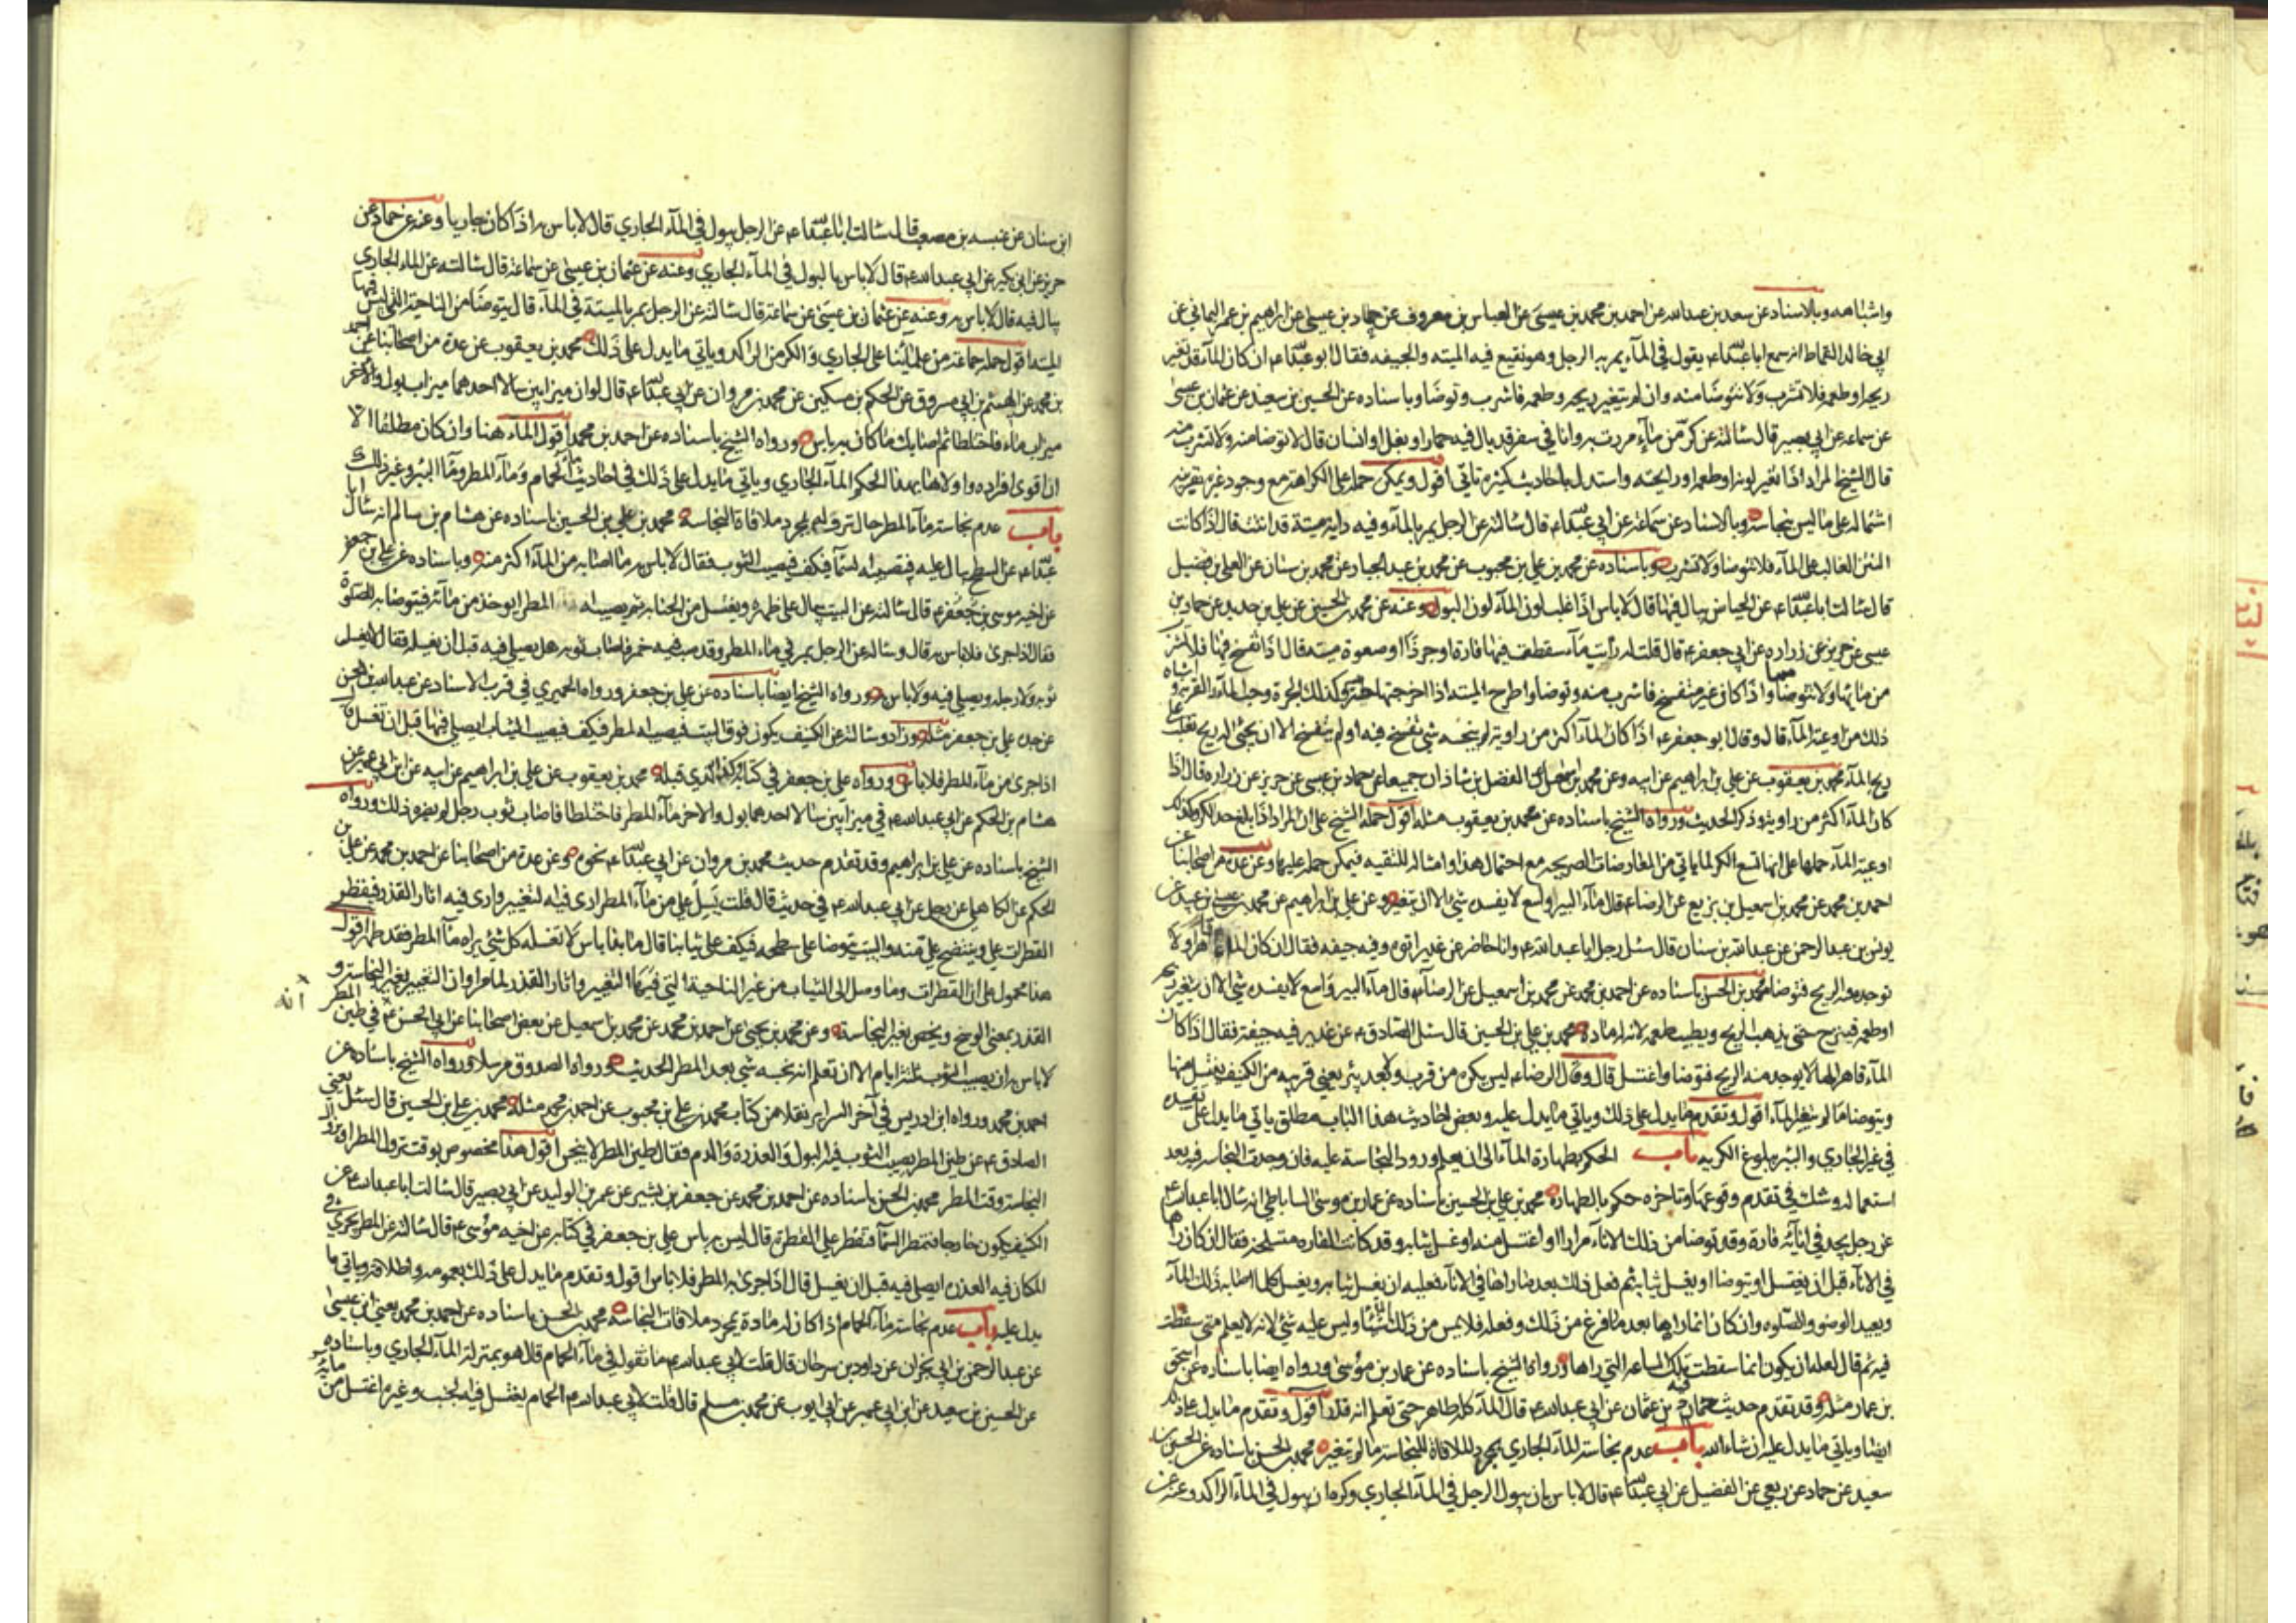 واشباهه وبالاسناد عن سعد بن عبدالله عن احمد بن محمد بن عيسى عن العباس بن معروف عن حماد بن عيسى عن ابراهيم بن عمر اليماني عن
ابي خالد القماط انه سمع ابا عبدالله ع يقول في الماء يمر به الرجل وهو نقيع فيه الميته والجيفه فقال ابو عبدالله ع ان كان الماء قد تغير
ريحه او طعمه فلا تشرب ولا تتوضا منه وان لم يتغير ريحه وطعمه فاشرب وتوضا وباسناده عن الحسين بن سعيد عن عثمان بن عيسى
عن سماعه عن ابي بصير قال سالته عن كر من ماء مررت به وانا في سفر قد بال فيه حمار او بغل او انسان قال لا توضا منه ولا تشرب منه
قال الشيخ المراد اذا تغير لونه او طعمه او رايحته واستدل باحاديث كثيره تاتي اقول ويمكن حمله على الكراهة مع وجود غيره بقرينه
اشتماله على ما ليس بنجاسة وبالاسناد عن سماعة عن ابي عبدالله ع قال سالته عن الرجل يمر بالماء وفيه دابة ميتة قد انتنت قال اذا كانت
النتن الغالب على الماء فلا تتوضا ولا تشرب وباسناده عن محمد بن علي بن محبوب عن محمد بن عبد الجبار عن محمد بن سنان عن العلا بن فضيل
قال سالت ابا عبدالله ع عن الحياض يبال فيها قال لا باس اذا غلب لون الماء لون البول وعنه عن محمد بن الحسين عن علي بن حديد عن حماد بن
عيسى عن حريز عن زراره عن ابي جعفر ع قال قلت له راوية من ماء سقطت فيها فارة او جرذ او صعوة ميته قال اذا تفسخ فيها فلا تشرب
من مائها ولا تتوضا واذا كان غير متفسخ فاشرب منه وتوضا واطرح الميتة اذا اخرجتها طرية وكذلك الجرة وحب الماء والقربة واشباه
ذلك من اوعية الماء قال وقال ابو جعفر ع اذا كان الماء اكثر من راوية لم ينجسه شي تفسخ فيه او لم يتفسخ الا ان يجئ له ريح تغلب على
ريح الماء محمد بن يعقوب عن علي بن ابراهيم عن ابيه وعن محمد بن اسمعيل عن الفضل بن شاذان جميعا عن حماد بن عيسى عن حريز عن زراره قال اذا
كان الماء اكثر من راوية وذكر الحديث ورواه الشيخ باسناده عن محمد بن يعقوب مثله اقول حمله الشيخ على ان المراد اذا بلغ حد الكر وكذلك
اوعية الماء حملها على انها تسع الكر لما ياتي من المعارضات الصريحه مع احتمال هذا وامثاله للتقيه فيمكن حمله عليها وعن عدة من اصحابنا عن
احمد بن محمد عن محمد بن اسمعيل بن بزيع عن الرضا ع قال ماء البير واسع لا يفسده شئ الا ان يتغير وعن علي بن ابراهيم عن محمد بن عيسى بن عبيد عن
يونس بن عبد الرحمن عن عبدالله بن سنان قال سئل رجل ابا عبدالله ع وانا حاضر عن غدير اتوه وفيه جيفه فقال ان كان الماء قاهرا ولا
توجد منه الريح فتوضا محمد بن الحسن باسناده عن احمد بن محمد عن محمد بن اسمعيل عن الرضا ع قال ماء البير واسع لا يفسده شي الا ان يتغير ريحه
او طعمه فينزح حتى يذهب الريح ويطيب طعمه لان له مادة محمد بن علي بن الحسين قال سئل الصادق ع عن غدير فيه جيفة فقال اذا كان
الماء قاهرا لها لا يوجد منه الريح فتوضا واغتسل قال وقال الرضا ع ليس يكره من قرب ولا بعد بئر يعني قريبه من الكنيف يغتسل منها
ويتوضا ما لم يتغير الماء اقول وتقدم ما يدل على ذلك وياتي ما يدل عليه وبعض احاديث هذا الباب مطلق ياتي ما يدل على تقييده
في غير الجاري والبئر ببلوغ الكرية باب الحكم بطهارة الماء الى ان يعلم ورود النجاسة عليه فان وجدت النجاسه فيه بعد
استعماله وشك في تقدم وقوعها وتاخره حكم بالطهارة محمد بن علي بن الحسين باسناده عن عمار بن موسى الساباطي انه سال ابا عبدالله ع
عن رجل يجد في انائه فارة وقد توضا من ذلك الاناء مرارا او اغتسل منه او غسل ثيابه وقد كانت الفاره متسلخه فقال ان كان راها
في الاناء قبل ان يغتسل او يتوضا او يغسل ثيابه ثم فعل ذلك بعد ما راها في الاناء فعليه ان يغسل ثيابه ويغسل كلما اصابه ذلك الماء
ويعيد الوضو والصلوه وان كان انما راها بعد ما فرغ من ذلك وفعله فلا يمس من ذلك الماء شيئا وليس عليه شئ لانه لا يعلم متى سقطت
فيه ثم قال لعله ان يكون انما سقطت تلك الساعه التي راها ورواه الشيخ باسناده عن عمار بن موسى ورواه ايضا باسناده عن اسحق
بن عمار مثله وقد تقدم حديث حماد بن عثمان عن ابي عبدالله ع قال الماء كله طاهر حتى تعلم انه قذر اقول وتقدم ما يدل على ذلك
ايضا وياتي ما يدل عليه ان شاء الله باب عدم نجاسة الماء الجاري بمجرد الملاقاة للنجاسة ما لم يتغير محمد بن الحسن باسناده عن الحسين بن
سعيد عن حماد عن ربعي عن الفضيل عن ابي عبدالله ع قال لا باس بان يبول الرجل في الماء الجاري وكره ان يبول في الماء الراكد وعنه عن
ابن سنان عن عنبسه بن مصعب قال سالت ابا عبدالله ع عن الرجل يبول في الماء الجاري قال لا باس به اذا كان جاريا وعنه عن حماد عن
حريز عن ابن بكير عن ابي عبدالله ع قال لا باس بالبول في الماء الجاري وعنه عن عثمان بن عيسى عن سماعة قال سالته عن الماء الجاري
يبال فيه قال لا باس به وعنه عن عثمان بن عيسى عن سماعة قال سالته عن الرجل يمر بالميتة في الماء قال يتوضا من الناحية التي ليس فيها
الميتة اقول حمله جماعة من علمائنا على الجاري والكر من الراكد وياتي ما يدل على ذلك محمد بن يعقوب عن عدة من اصحابنا عن احمد
بن محمد عن الهيثم بن ابي مسروق عن الحكم بن مسكين عن محمد بن مروان عن ابي عبدالله ع قال لو ان ميزابين سالا احدهما ميزاب بول والاخر
ميزاب ماء فاختلطا ثم اصابك ما كان به باس ورواه الشيخ باسناده عن احمد بن محمد اقول الماء هنا وان كان مطلقا الا
ان اقوى افراده واولاها بهذا الحكم الماء الجاري وياتي ما يدل على ذلك في احاديث ماء الحمام وماء المطر وماء البئر وغير ذلك
باب عدم نجاسة ماء المطر حال نزوله بمجرد ملاقاة النجاسة محمد بن علي بن الحسين باسناده عن هشام بن سالم انه سال ابا
عبدالله ع عن السطح يبال عليه فتصيبه السماء فيكف فيصيب الثوب فقال لا باس به ما اصابه من الماء اكثر منه وباسناده عن علي بن جعفر
عن اخيه موسى بن جعفر ع قال سالته عن البيت يبال على ظهره ويغتسل من الجنابه ثم يصيبه المطر ايوخذ من مائه فيتوضا به للصلوة
فقال اذا جرى فلا باس به قال وساله عن الرجل يمر في ماء المطر وقد صب فيه خمر فاصاب ثوبه هل يصلي فيه قبل ان يغسله فقال لا يغسل
ثوبه ولا رجله ويصلي فيه ولا باس ورواه الشيخ ايضا باسناده عن علي بن جعفر ورواه الحميري في قرب الاسناد عن عبدالله بن الحسن
عن جده علي بن جعفر مثله وزاد وسالته عن الكنيف يكون فوق البيت فيصيبه المطر فيكف فيصيب الثياب ايصلي فيها قبل ان تغسل قال
اذا جرى من ماء المطر فلا باس ورواه علي بن جعفر في كتابه وكذا الذي قبله محمد بن يعقوب عن علي بن ابراهيم عن ابيه عن ابن ابي عمير عن
هشام بن الحكم عن ابي عبدالله ع في ميزابين سالا احدهما بول والاخر ماء المطر فاختلطا فاصاب ثوب رجل لم يضره ذلك ورواه
الشيخ باسناده عن علي بن ابراهيم وقد تقدم حديث محمد بن مروان عن ابي عبدالله ع نحوه وعن عدة من اصحابنا عن احمد بن محمد عن علي بن
الحكم عن الكاهلي عن رجل عن ابي عبدالله ع في حديث قال قلت يسيل علي من ماء المطر ارى فيه التغيير وارى فيه اثار القذر فيقطر
القطرات علي وينتضح علي منه والبيت يتوضا على سطحه فيكف على ثيابنا قال ما بذا باس لا تغسله كل شئ يراه ماء المطر فقد طهر اقول
هذا محمول على ان القطرات وما وصل الى الثياب من غير الناحية التي فيها التغيير واثار القذر لما مر او ان التغيير بغير النجاسة و
القذر بمعنى الوسخ ويخص بغير النجاسة وعن محمد بن يحيى عن احمد بن محمد عن محمد بن اسمعيل عن بعض اصحابنا عن ابي الحسن ع في طين المطر
انه
لا باس به ان يصيب الثوب ثلثة ايام الا ان تعلم انه نجسه شي بعد المطر الحديث ورواه الصدوق مرسلا ورواه الشيخ باسناده عن
احمد بن محمد ورواه ابن ادريس في آخر السراير نقلا من كتاب محمد بن علي بن محبوب عن احمد بن محمد مثله محمد بن علي بن الحسين قال سئل يعني
الصادق ع عن طين المطر يصيب الثوب فيه البول والعذرة والدم فقال طين المطر لا ينجس اقول هذا مخصوص بوقت نزول المطر او بزوال
النجاسة وقت المطر محمد بن الحسن باسناده عن احمد بن محمد عن جعفر بن بشير عن عمر بن الوليد عن ابي بصير قال سالت ابا عبدالله ع عن
الكنيف يكون خارجا فتمطر السماء فتقطر علي القطرة قال ليس به باس علي بن جعفر في كتابه عن اخيه موسى ع قال سالته عن المطر يجري في
المكان فيه العذرة ايصلى فيه قبل ان يغسل قال اذا جرى به المطر فلا باس اقول وتقدم ما يدل على ذلك بعمومه واطلاقه وياتي ما
يدل عليه باب عدم نجاسة ماء الحمام اذا كان له مادة بمجرد ملاقات النجاسة محمد بن الحسن باسناده عن احمد بن محمد يعني ابن عيسى
عن عبد الرحمن بن ابي نجران عن داود بن سرحان قال قلت لابي عبدالله ع ما تقول في ماء الحمام قال هو بمنزلة الماء الجاري وباسناده
عن الحسين بن سعيد عن ابن ابي عمير عن ابي ايوب عن محمد بن مسلم قال قلت لابي عبدالله ع الحمام يغتسل فيه الجنب وغيره اغتسل من مائه